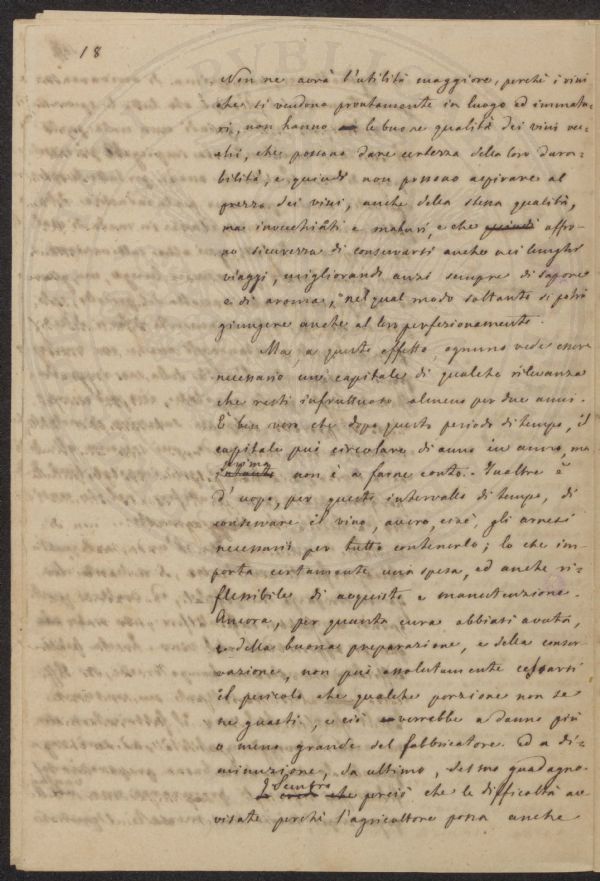 18
Non ne avrà l'utilità maggiore, perchè i vini
che si vendono prontamente in luogo ed immatu-
ri, non hanno le buone qualità dei vini vec-
chi, che possono dare certezza della loro dura-
bilità, e quindi non possono aspirare al
prezzo dei vini, anche della stessa qualità,
ma invecchiati e maturi, e che quindi offro-
no sicurezza di conservarsi anche nei lunghi
viaggi, migliorandi anzi sempre di sapore
e di aroma, nel qual modo soltanto si potrà
giungere anche al loro perfezionamento.
Ma, a questo effetto, ognuno vede essere
necessario un capitale di qualche rilevanza
che resti infruttuoso almeno per due anni.
È ben vero che dopo questo periodo di tempo, il
capitale può circolare di anno in anno, ma
prima
intanto non è a farne conto. Inoltre è
d'uopo, per questo intervallo di tempo, di
conservare il vino, avere, cioè, gli arnesi
necessarii per tutto contenerlo; lo che im-
porta certamente una spesa, ed anche ri-
flessibile di acquisto e manutenzione.
Ancora, per quanta cura abbiasi avuta,
e della buona preparazione, e della conser-
vazione, non può assolutamente cessarsi
il pericolo che qualche porzione non se
ne guasti, e ciò verrebbe a danno più
o meno grande del fabbricatore ed a di-
minuzione, da ultimo, del suo guadagno.
Sembra
che perciò che le difficoltà av
visate perchè l'agricoltore possa anche